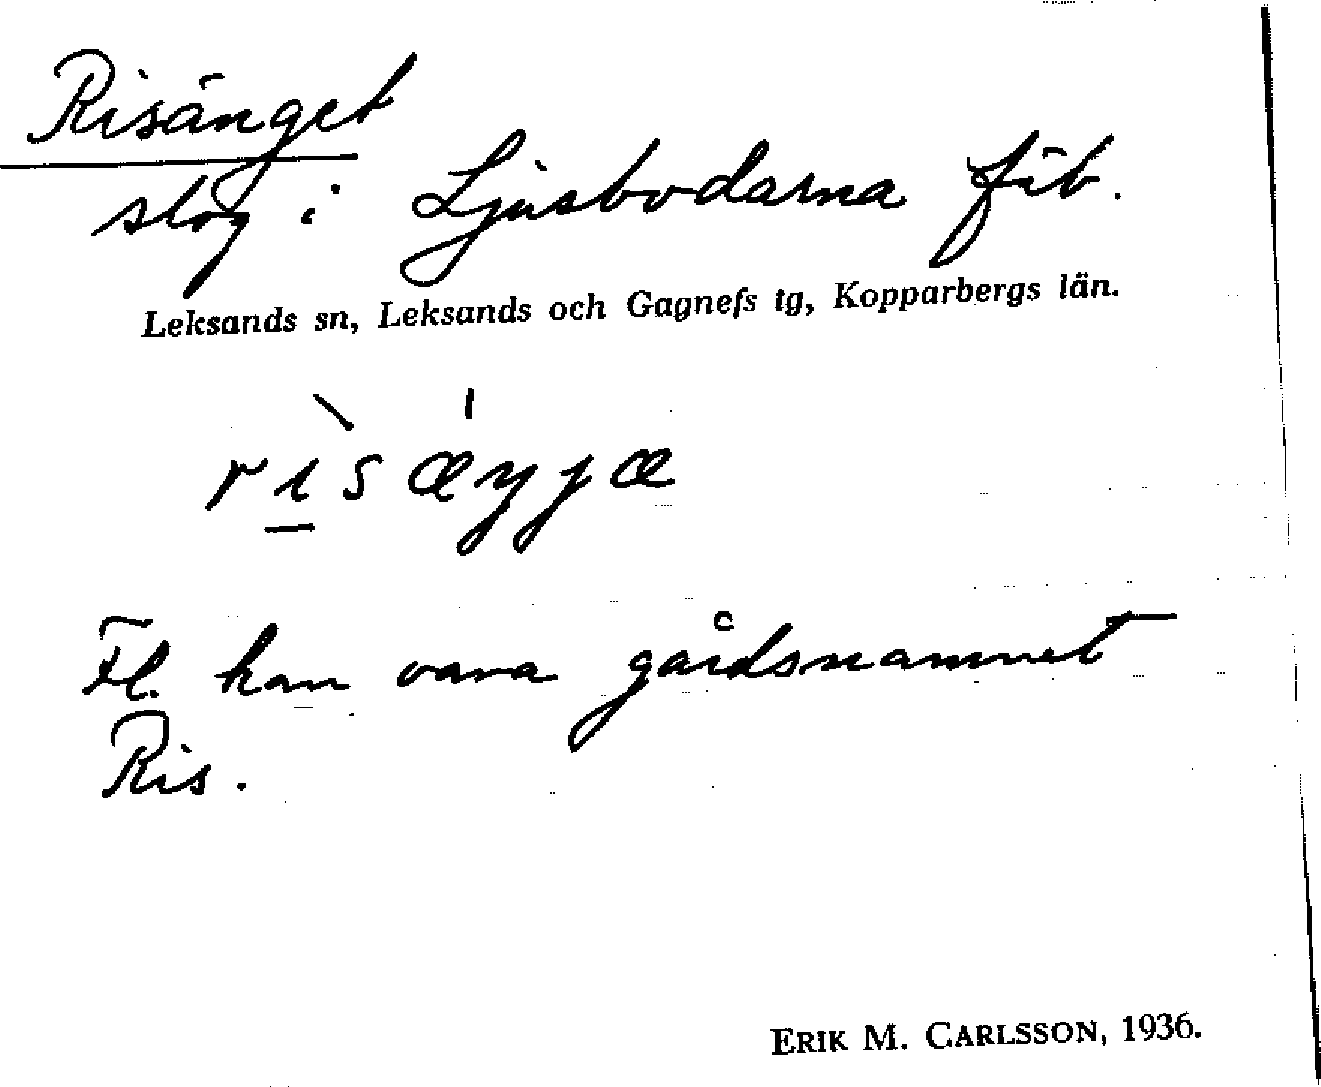 Risänget
slog i Ljusbodarna fäb.
Leksands sn, Leksands och Gagnefs tg, Kopparbergs län.
rı̱̀sǽŋjæ
Fl. kan vara gårdsnamnet
Ris.
ERIK M. CARLSSON, 1936.